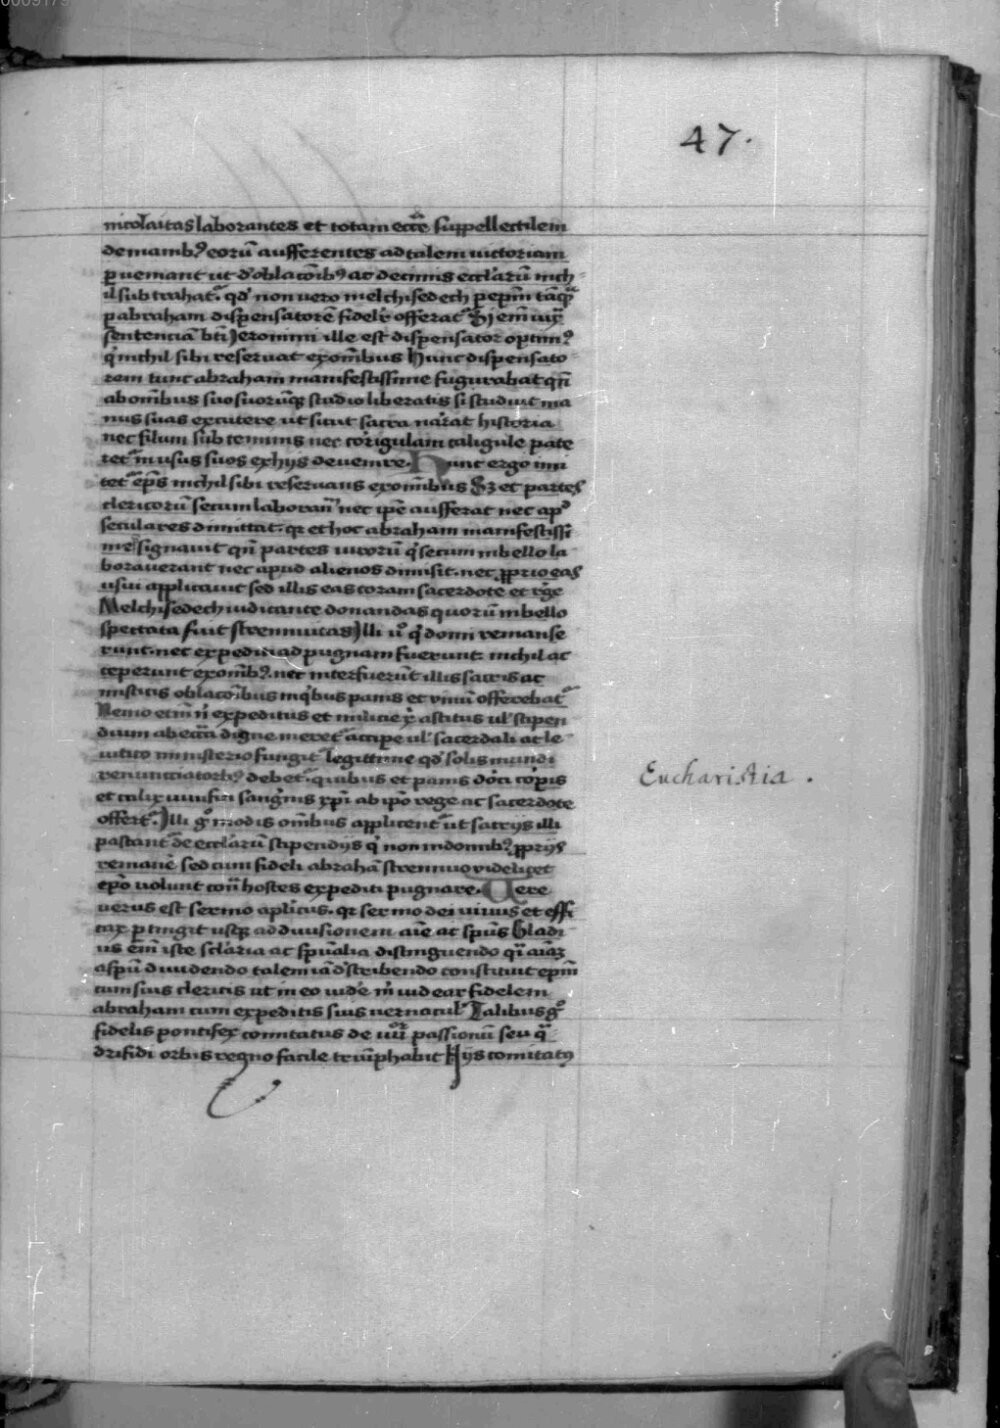 47.
nicolaitas laborantes et totam eccᷓe suppellectilem
de manibꝰ eorū aufferentes ad talem victoriam
ꝑveniant ut d' oblacōibꝰ ac decimis eccl'arū nich
il sub trahat᷑ qd' non vero melchisedech ꝑ epm̄ tāqᷓ
ꝑ abraham dispensatorē fidelē offerat᷑ enī iux̄
sentenciā bt̄i Jeronimi ille est dispensator optimꝰ
q' nichil sibi reservat ex om̄ibus Hunc dispensato
rem tunc abraham manifestissime fugurabat qn̄
ab om̄ibus suo suorūqꝫ studio liberatis si studuit ma
nus suas excutere ut sicut sacra narrat historia
nec filum sub teminis nec corrigulam caligule pate
ret᷑ in usus suos ex hijs devenire. Hunc ergo imi
tet᷑ ep̄s nichil sibi reservans ex om̄ibus Sꝫ et partes
clericorū secum laboran᷑ nec ip̄e aufferat nec apᵈ
seculares dimittat. qr et hoc abraham manifestissi
me signavit qn̄ partes virorū q' secum in bello la
boraverant nec apud alienos dimisit. nec ꝓprio eas
usui applicavit sed illis eas coram sacerdote et rege
Melchisedech iudicante donandas quorū in bello
spectata fuit strennuitas Illi v° q' domi remanse
runt. nec expediti ad pugnam fuerunt. nichil ac
ceperunt ex om̄ibꝰ. nec interfuerūt illis sacris ac
misticis oblacōibus in q'bus panis et vinū offerebat᷑
Nemo etm̄ n' expeditus et milicie xp̄i astitus ul' stipen
dium ab ecc̄ia digne meret᷑ accipe ul' sacerdali ac le
vitico ministerio fungit᷑ legittime qd' solis mundi
renunciatoribꝰ debet᷑. quibus et panis dn̄ici corꝑis
et calix vivifici sang'nis xp̄i ab ip̄o rege ac sacerdote
offert᷑. Illi g° modis om̄ibus applicent᷑ ut sacrijs illi
pascant᷑ de eccl'arū stipendijs q' non in domibꝰ ꝓprijs
remanē sed cum fideli abrahā strennuo videlicet
ep̄o volunt contᷓ hostes expediti pugnare. Vere
verus est sermo apl'icus. qr sermo dei vivus et effi
cax ꝑtingit usqꝫ ad divisionem aīe ac spūs Gladi
us enī iste sclāria ac spūalia distinguendo qͥ aīāꝫ
a spū dividendo talem iā d'scribendo constituit epm̄
cum suis clericis ut in eo videre m' videar fidelem
abraham cum expeditis suis vernacul' Talibus g°
fidelis pontifex comitatus de passionū seu qᷓ
drifidi orbis regno facile triūphabit Hijs comitatꝰ
Eucharistia .